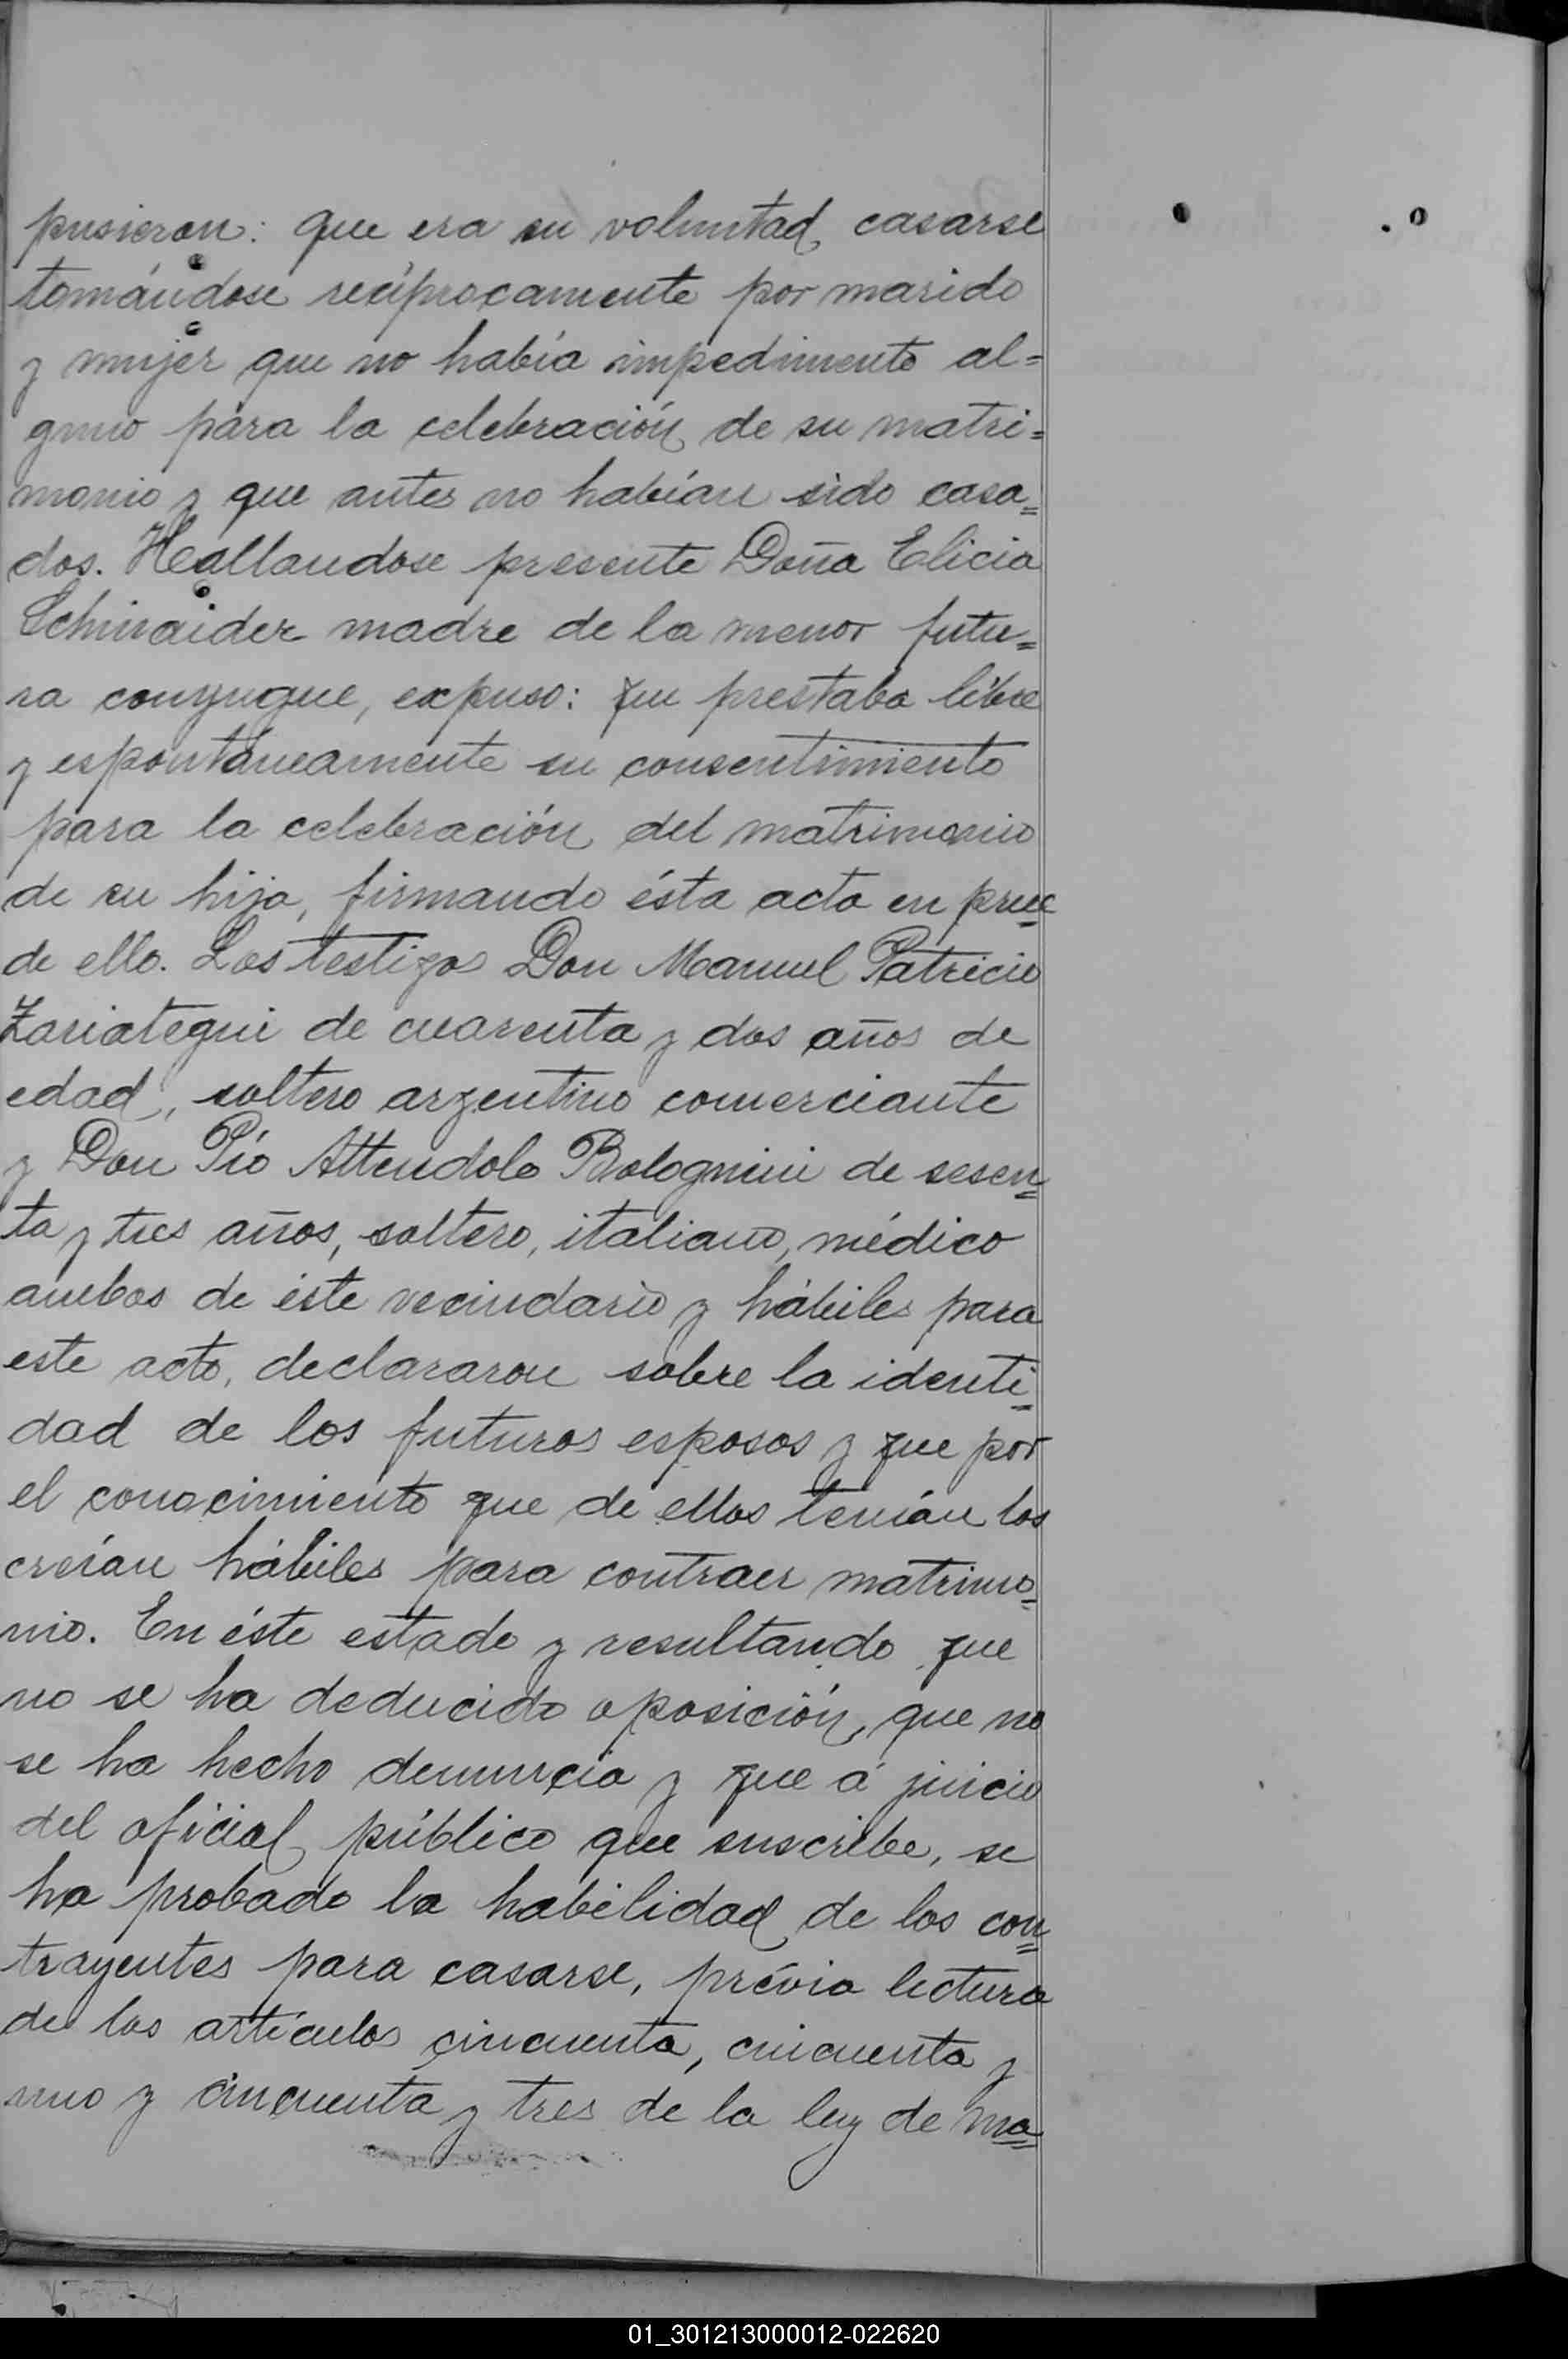 pusieron: que era su voluntad casarse
tomándose recíprocamente por marido
y mujer que no había impedimento al=
guno para la celebración de su matri=
monio y que antes no habían sido casa=
dos. Hallandose presente Doña Elicia
Schinaider madre de la menor futu=
ra conyugue, expuso: que prestaba libre
y espontáneamente su consentimiento
para la celebración del matrimonio
de su hija, firmando ésta acta en prue
de ello. Los testigos Don Manuel Patricio
Zariategui de cuarenta y dos años de
edad, soltero argentino comerciante
y Don Pío Attendolo Bolognini de sesen=
ta y tres años, soltero, italiano, médico
ambos de éste vecindario y hábiles para
este acto, declararon sobre la identi=
dad de los futuros esposos y que por
el conocimiento que de ellos tenían los
creían hábiles para contraer matrimo=
nio. En éste estado y resultando que
no se ha deducido oposición, que no
se ha hecho denuncia y que á juicio
del oficial público que suscribe, se
ha probado la habilidad de los con=
trayentes para casarse, prévia lectura
de los artículos cincuenta, cincuenta y
uno y cincuenta y tres de la ley de ma=
01_301213000012-022620